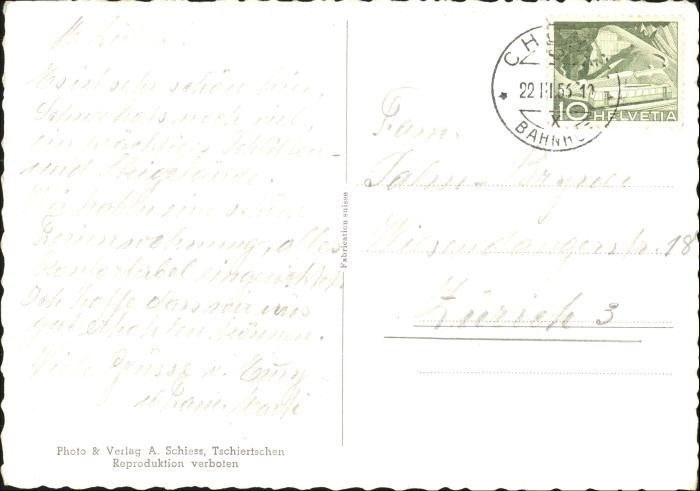 Es ist sehr schön hier,
Schnee hats noch
ein prächtiges Schlitten-
und Skigelände.
Wir haben eine schöne
Ferienwohnung, alles
komfortabel eingerichtet.
Ich hoffe dass wir uns
gut erholen können.
Viele Grüsse v. Emmy
u. Fam.
Photo & Verlag A. Schiess, Tschiertschen
Reproduktion verboten
Fabrication suisse
CH
22 III 53
BAHNH
10 HELVETIA
Fam.
Wiesendangerstr. 18
Zürich 3